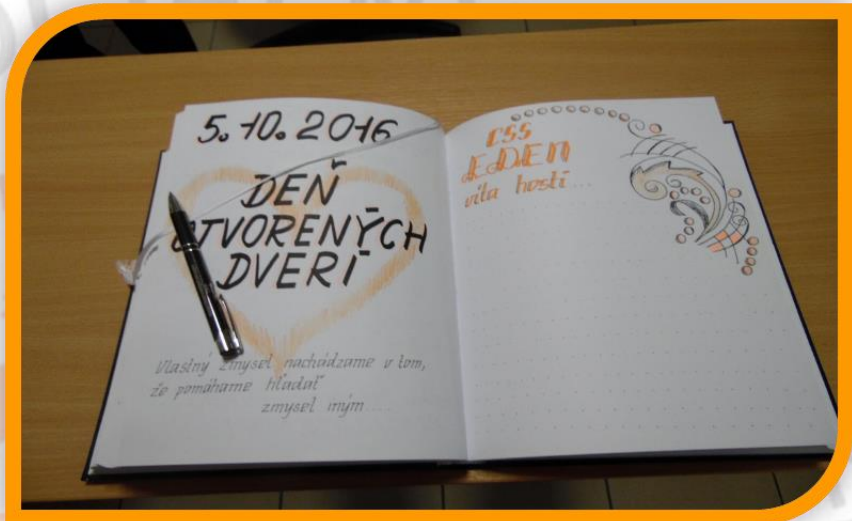 5. 10. 2016
DEŇ
OTVORENÝCH
DVERÍ
Vlastný zmysel nachádzame v tom,
že pomáhame hľadať
zmysel iným...
CSS
EDEN
víta hostí...